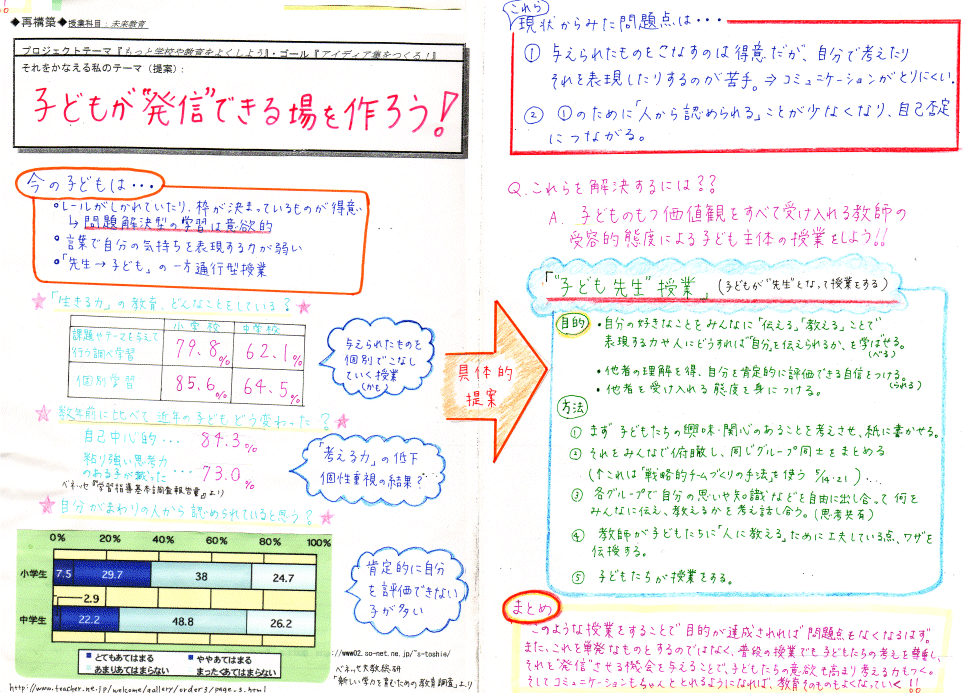 ◆再構築◆授業科目：未来教育
プロジェクトテーマ『もっと学校や教育をよくしよう』・ゴール『アイディア集をつくる！』
それをかなえる私のテーマ（提案）:
子どもが“発信”できる場を作ろう！
今の子どもは・・・
・レールがしかれていたり、枠が決まっているものが得意
↳問題解決型の学習は意欲的
・言葉で自分の気持ちを表現する力が弱い
・「先生→子ども」の一方通行型授業
★「生きる力」の教育、どんなことをしている？★
小学校 中学校
課題やテーマを与えて
行う調べ学習 79.8% 62.1%
個別学習 85.6% 64.5%
与えられたものを
個別でこなし
ていく授業
(かも)
★数年前に比べて近年の子どもどう変わった？★
自己中心的・・・ 84.3%
粘り強い思考力
のある子が減った・・・ 73.0%
ベネッセ『学習指導基本調査報告書』より
「考える力」の低下
個性重視の結果？
★自分がまわりの人から認められていると思う？★
0% 20% 40% 60% 80% 100%
小学生 7.5 29.7 38 24.7
2.9
中学生 22.2 48.8 26.2
とてもあてはまる ややあてはまる
あまりあてはまらない まったくあてはまらない
肯定的に自分
を評価できない
子が多い
://www02.so-net.ne.jp/~s-toshie/
ベネッセ文教総研
「新しい学力を育むための教育調査」より
http://www.teacher.ne.jp/welcome/gallery/order3/page_s.html
具体的
提案
これら
現状からみた問題点は・・・
① 与えられたものをこなすのは得意だが、自分で考えたり
それを表現したりするのが苦手。⇒コミュニケーションがとりにくい.
② ①のために「人から認められる」ことが少なくなり、自己否定
につながる。
Q.これらを解決するには？？
A. 子どものもつ価値観をすべて受け入れる教師の
受容的態度による子ども主体の授業をしよう!!
「“子ども先生”授業」(子どもが“先生”となって授業をする)
目的 ・自分の好きなことをみんなに「伝える」「教える」ことで
表現する力や人にどうすれば“自分”を伝えられるか、を学ばせる。
(べる)
・他者の理解を得、自分を肯定的に評価できる自信をつける。
・他者を受け入れる態度を身につける。
方法
① まず子どもたちの興味・関心のあることを考えさせ、紙に書かせる。
② それをみんなで俯瞰し、同じグループ同士をまとめる
(↑これは「戦略的チームづくりの手法」を使う 5/14・21)...
③ 各グループで自分の思いや知識などを自由に出し合って何を
みんなに伝え、教えるかを考え話し合う。(思考共有)
④ 教師が子どもたちに「人に教える」ために工夫している点、ワザを
伝授する。
⑤ 子どもたちが授業をする。
まとめ
このような授業をすることで目的が達成されれば問題点もなくなるはず。
また、これを単発なものとするのではなく、普段の授業でも子どもたちの考えを尊重し、
それを“発信”させる機会を与えることで、子どもたちの意欲も高まり考える力もつく。
そしてコミュニケーションもちゃんととれるようになれば、教育そのものもよくなっていく!!